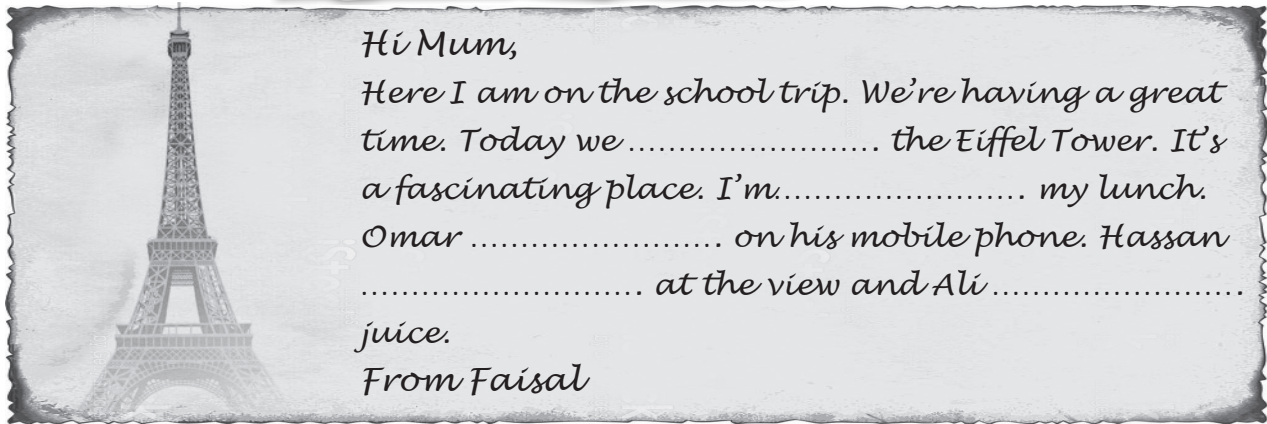 Hi Mum,
Here I am on the school trip. We're having a great
time. Today we ........................ the Eiffel Tower. It's
a fascinating place. I'm........................ my lunch.
Omar ........................ on his mobile phone. Hassan
........................... at the view and Ali ........................
juice.
From Faisal